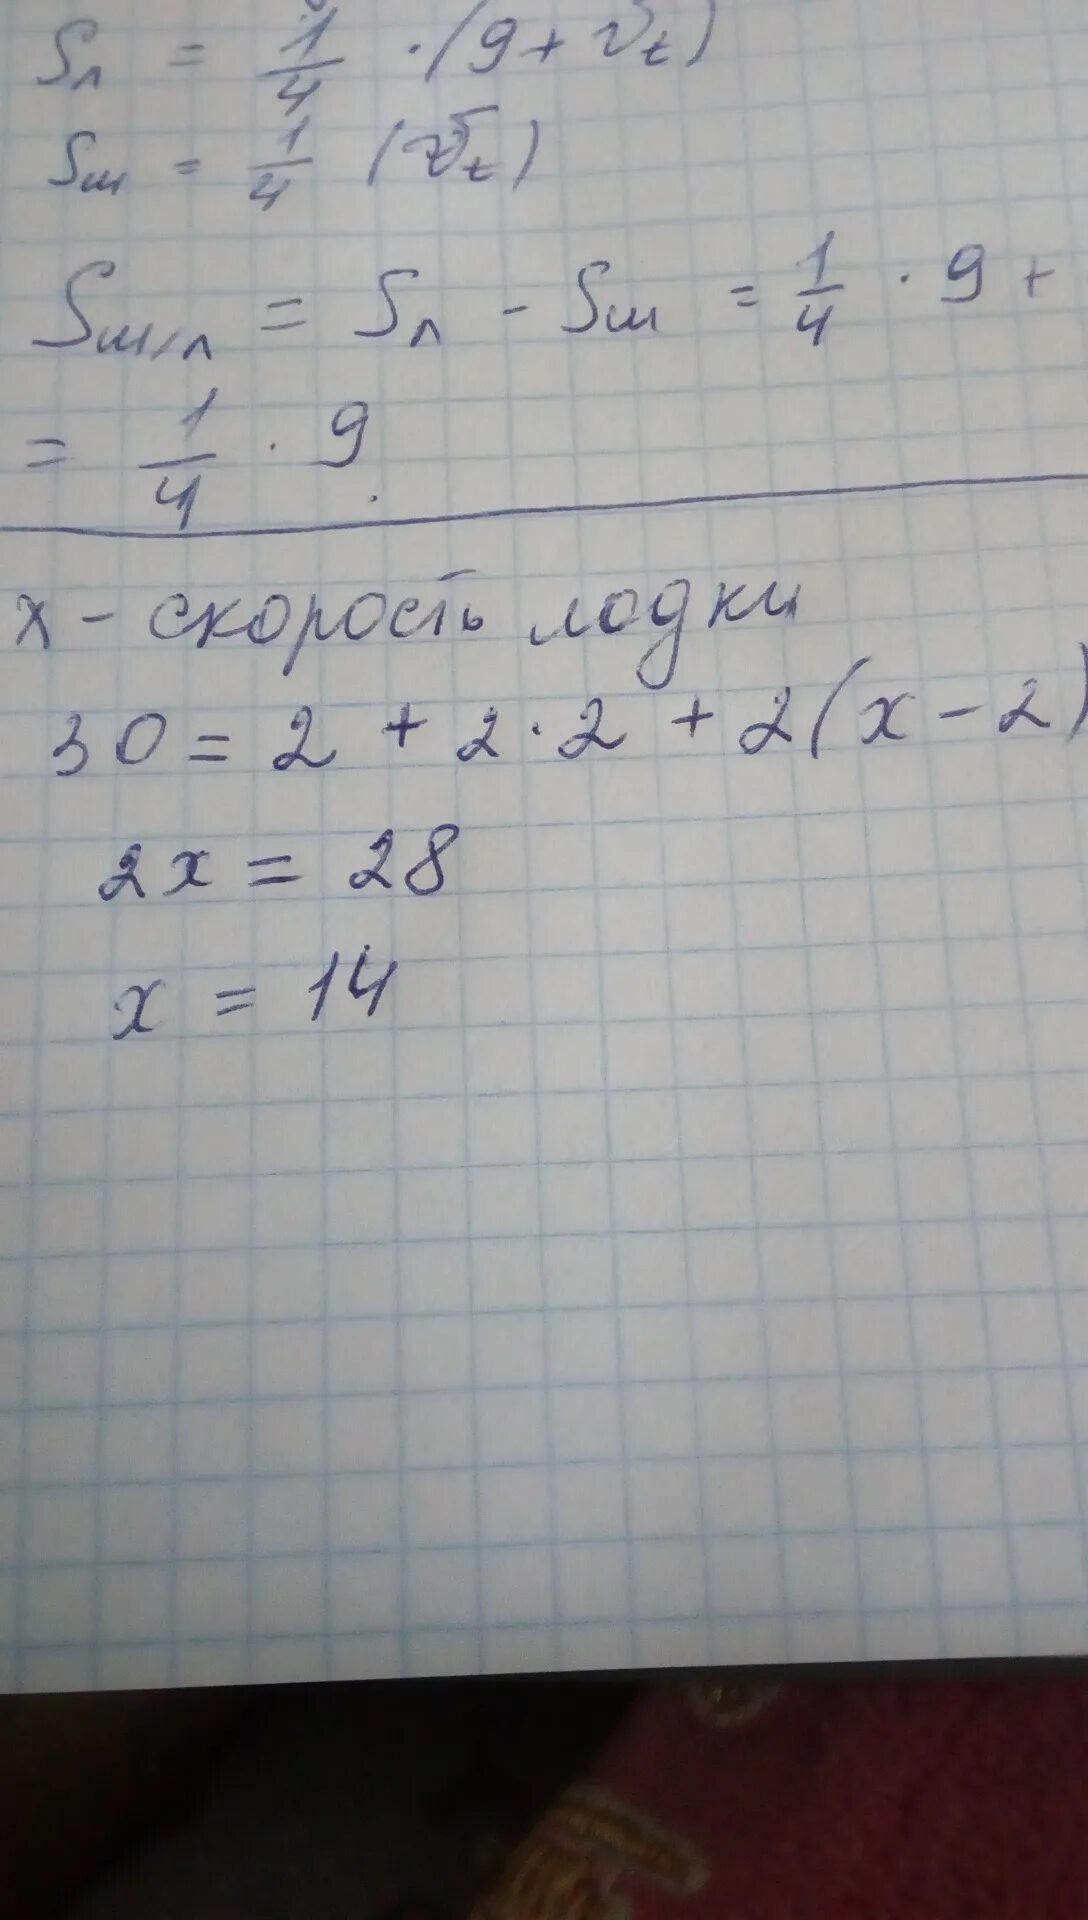 Sл = 1/4 · (9 + Vt)
Sш = 1/4 (Vt)
Sш/л = Sл - Sш = 1/4 · 9 +
= 1/4 · 9
x - скорость лодки
30 = 2 + 2 · 2 + 2(x - 2)
2x = 28
x = 14